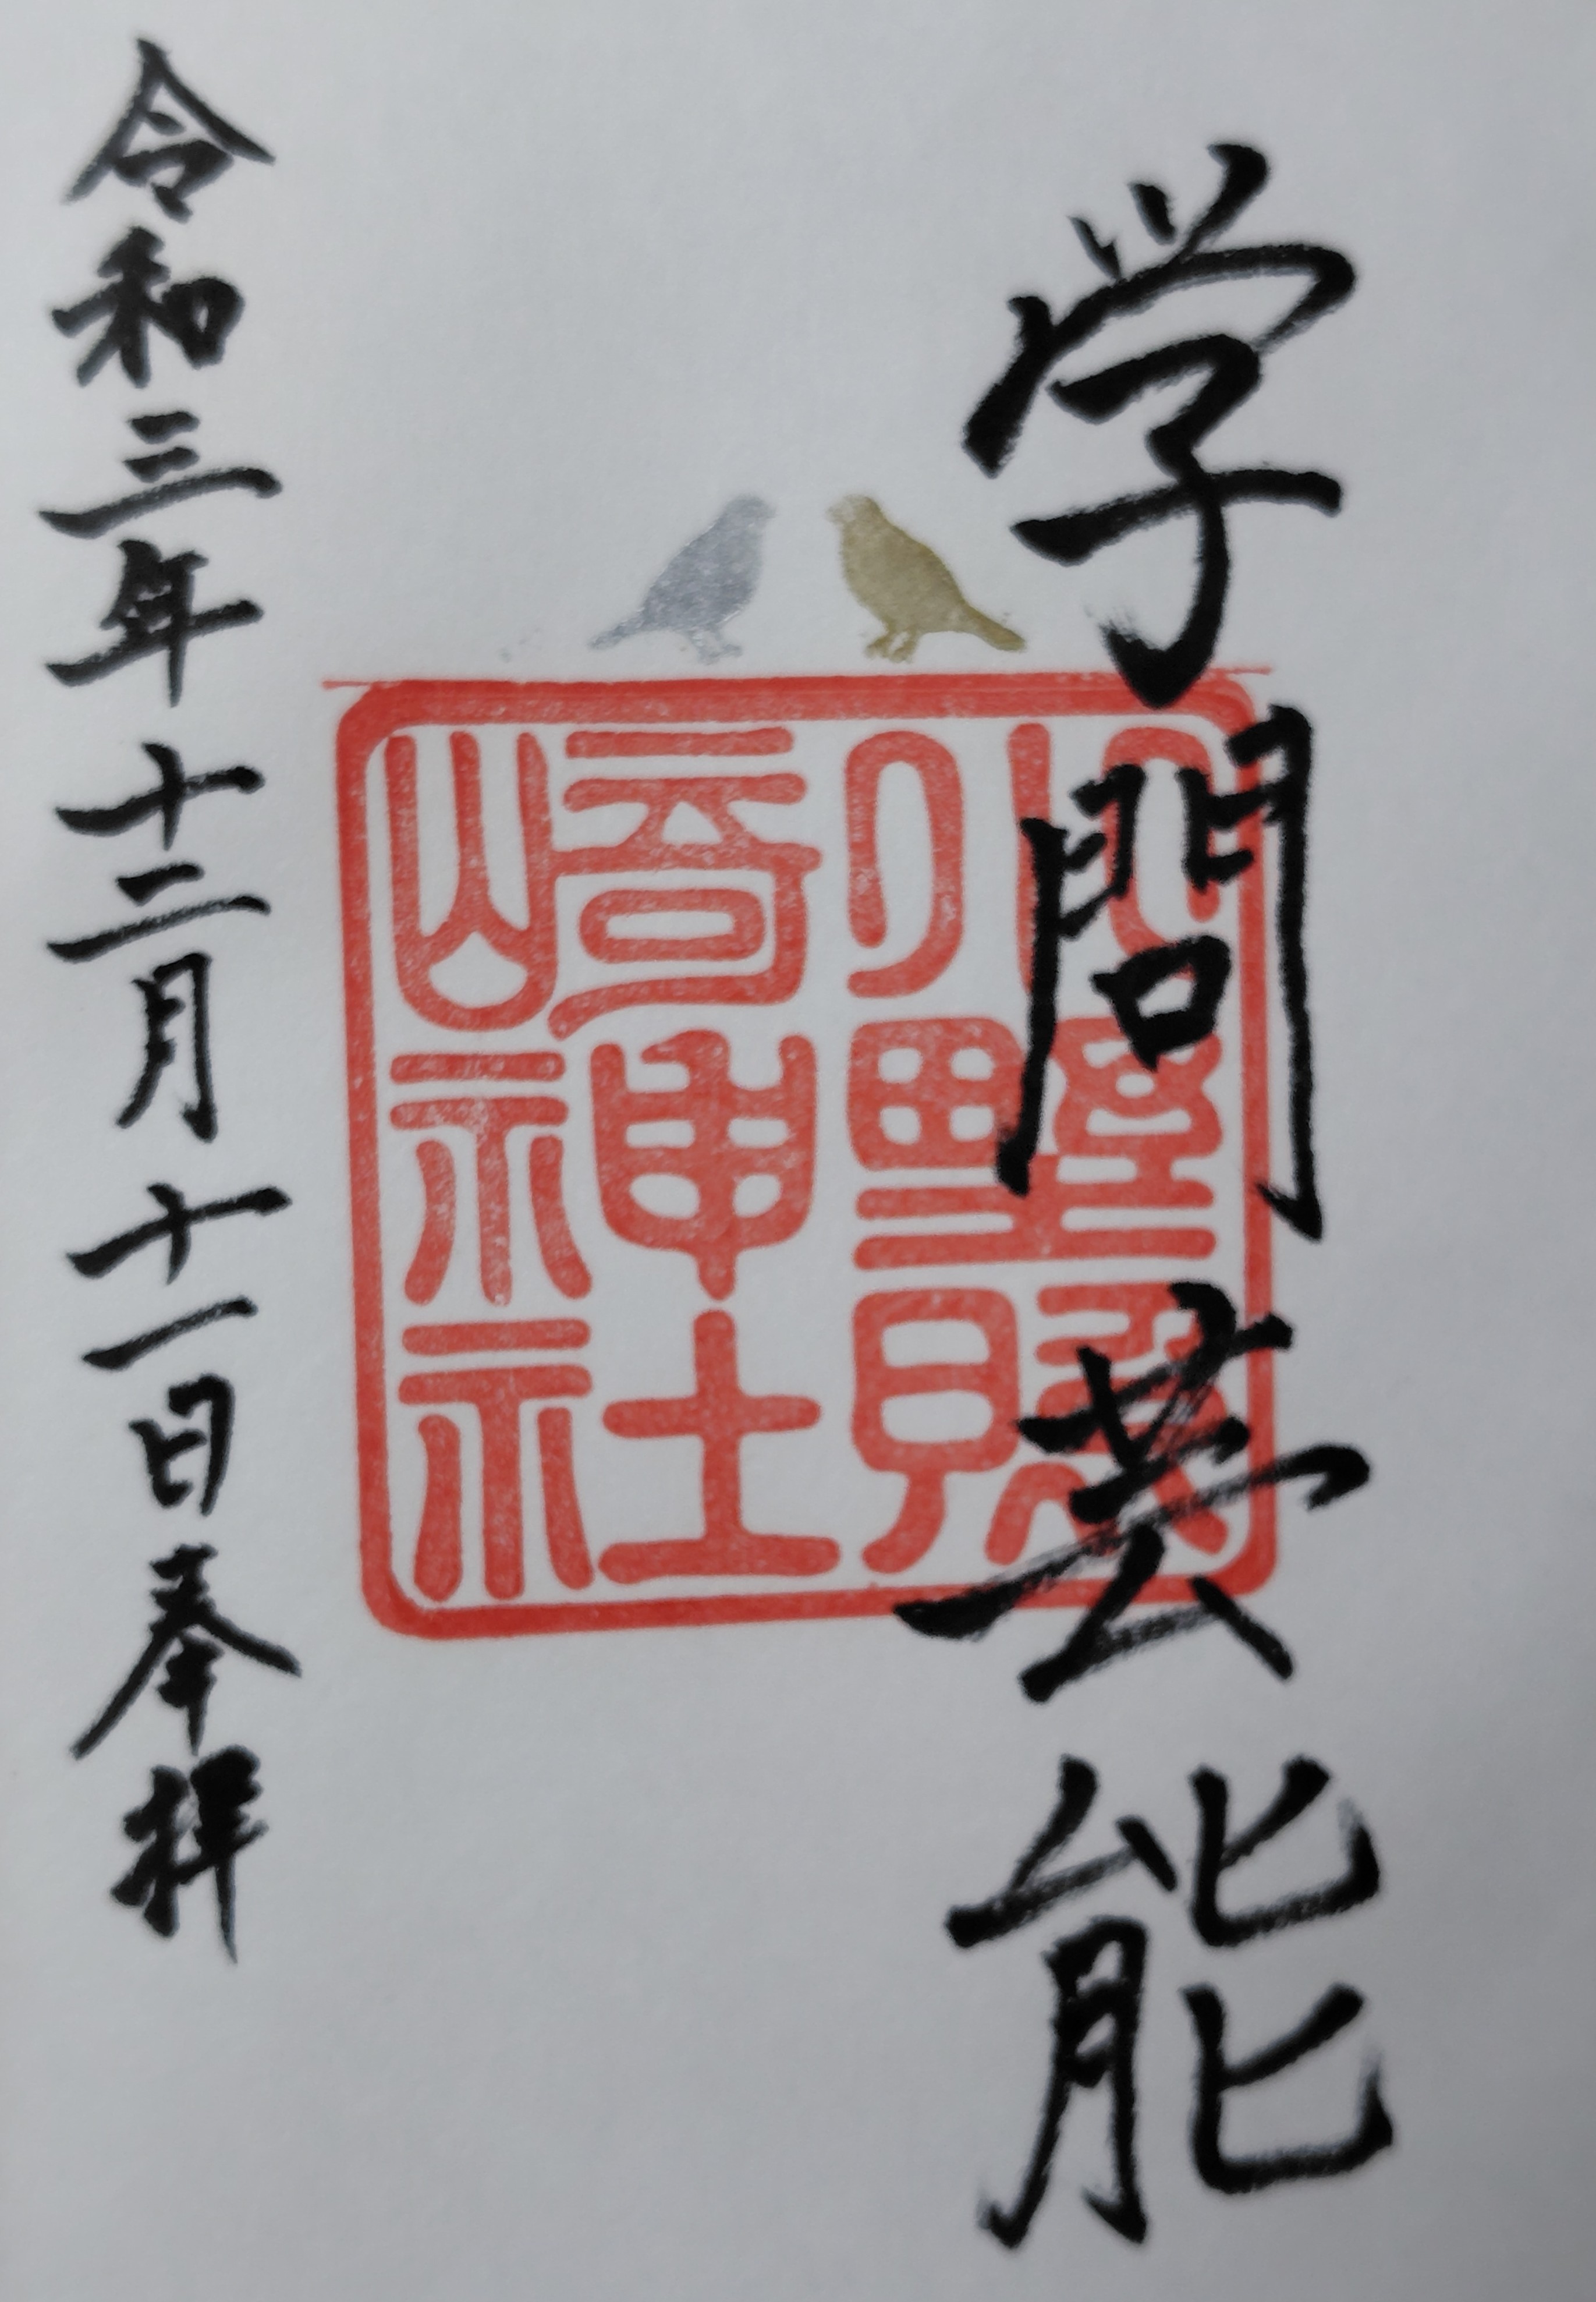 学問芸能
小野照
崎神社
令和三年十二月十一日奉拝